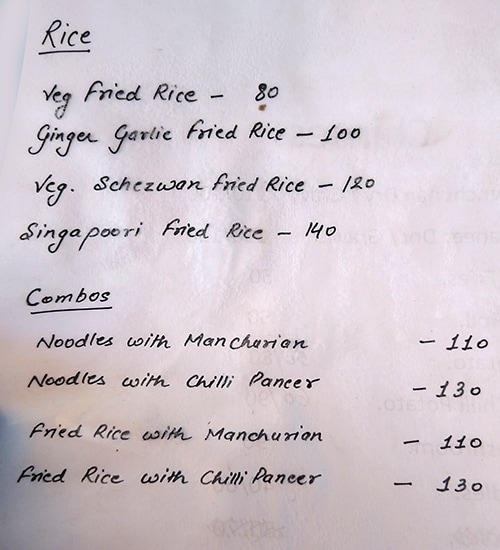 Rice
Veg Fried Rice - 80
Ginger Garlic Fried Rice - 100
Veg. Schezwan Fried Rice - 120
Singapoori Fried Rice - 140
Combos
Noodles with Manchurian - 110
Noodles with Chilli Paneer - 130
Fried Rice with Manchurian - 110
Fried Rice with Chilli Paneer - 130